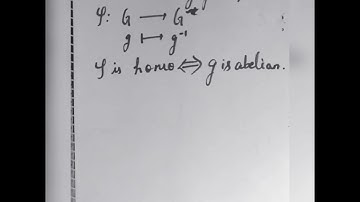 φ: G ⟶ G
g ⟼ g⁻¹
φ is homo ⟺ g is abelian.